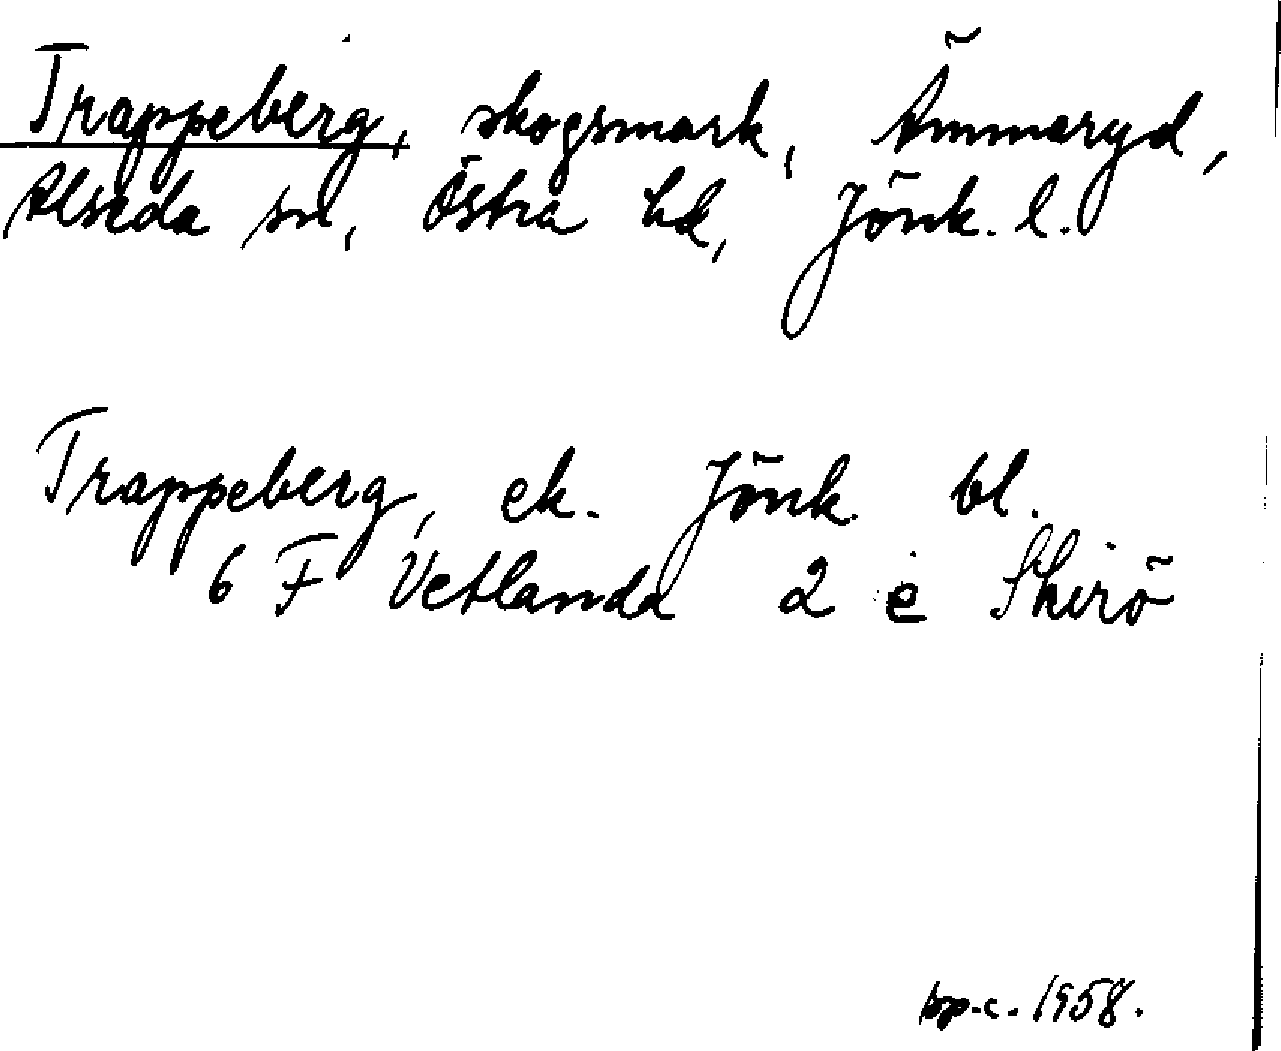 Trappeberg, skogsmark, Ämmaryd,
Alseda sn, Östra hd, Jönk. l.
Trappeberg, ek. Jönk bl.
6 F Vetlanda 2 e Skirö
1958.